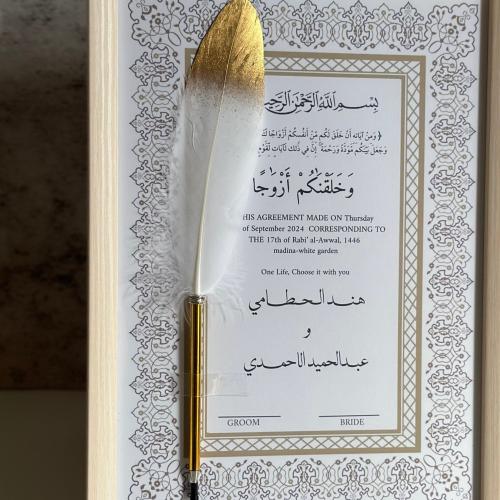 بِسْمِ اللَّهِ الرَّحْمَٰنِ الرَّحِيمِ
﴿ وَمِنْ آيَاتِهِ أَنْ خَلَقَ لَكُم مِّنْ أَنفُسِكُمْ أَزْوَاجًا
وَجَعَلَ بَيْنَكُم مَّوَدَّةً وَرَحْمَةً ۚ إِنَّ فِي ذَٰلِكَ لَآيَاتٍ لِّقَوْمٍ
وَخَلَقْنَاكُمْ أَزْوَاجًا
HIS AGREEMENT MADE ON Thursday
of September 2024 CORRESPONDING TO
THE 17th of Rabi' al-Awwal, 1446
madina-white garden
One Life, Choose it with you
هند الحطامي
و
عبدالحميد الاحمدي
GROOM BRIDE